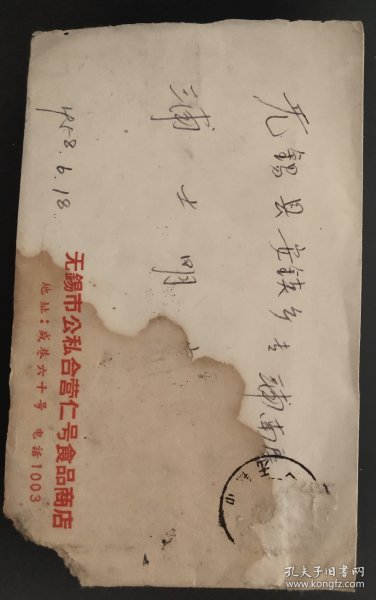 无锡县安镇乡
浦士明
1958.6.18
无錫市公私合营仁号食品商店
地址：盛巷六十号 电話1003
孔夫子旧书网
www.kongfz.com